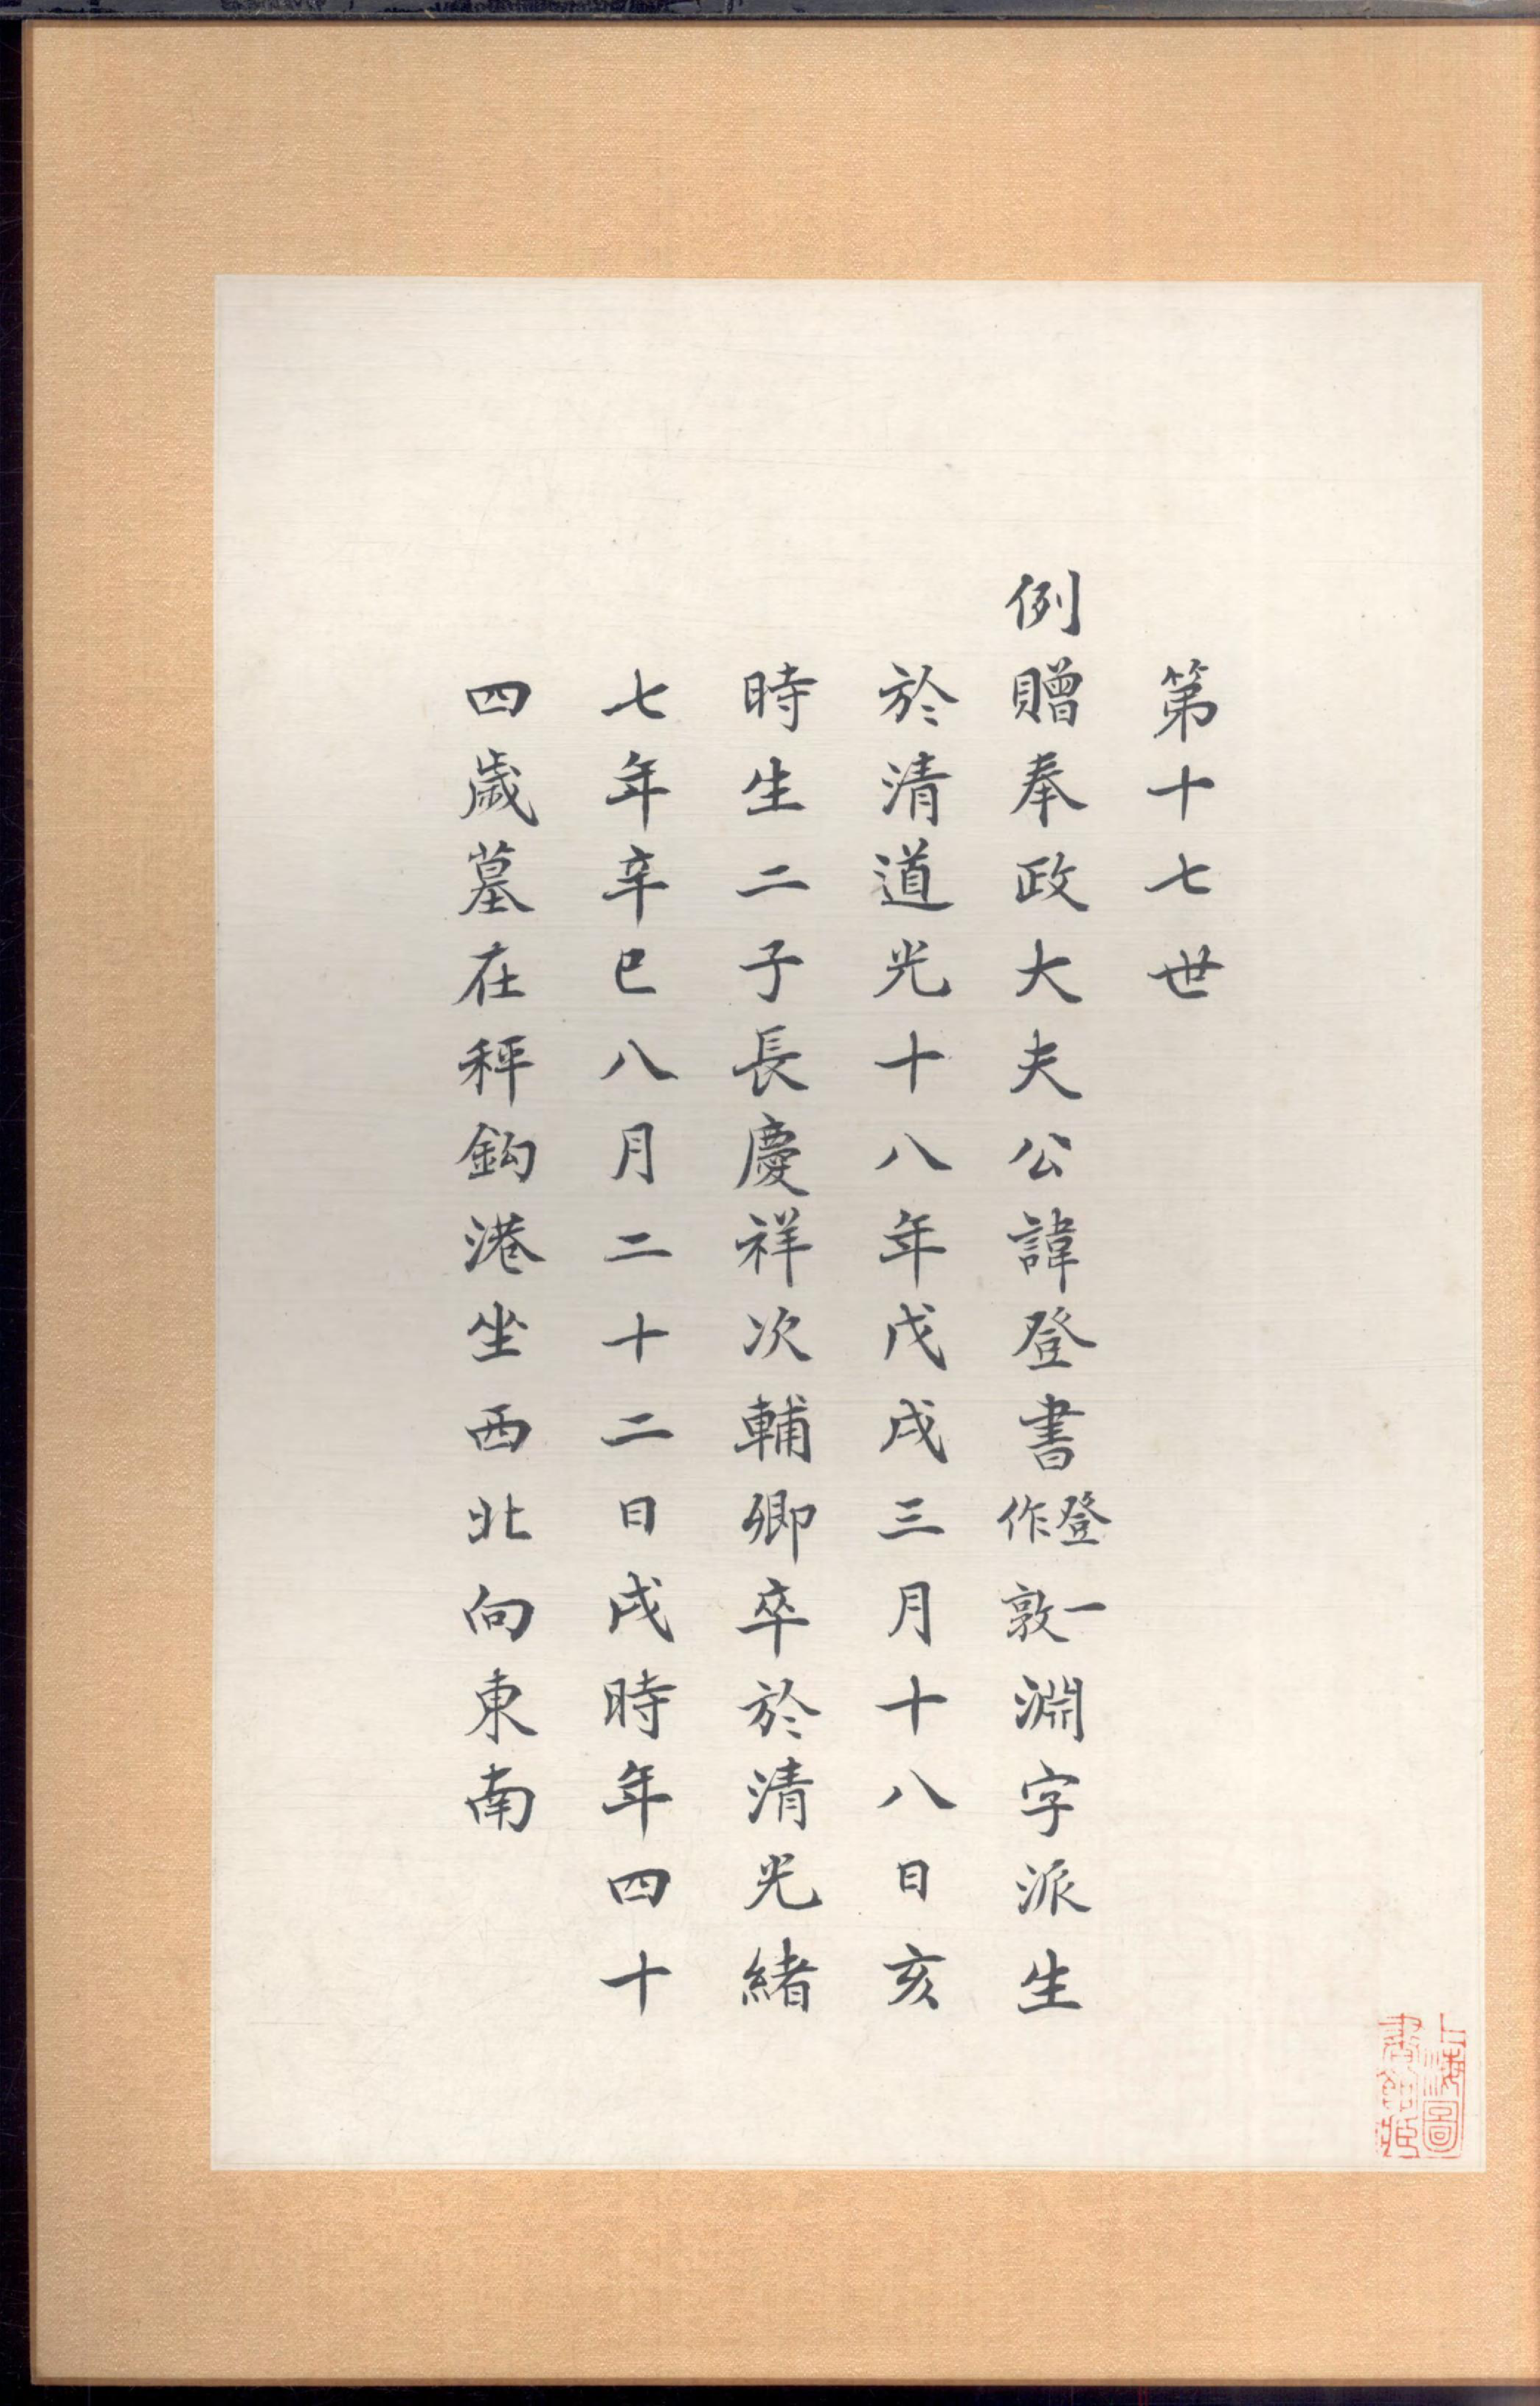 第十七世
例贈奉政大夫公諱登書登一作敦淵字派生
於清道光十八年戊戌三月十八日亥
時生二子長慶祥次輔卿卒於清光緒
七年辛巳八月二十二日戌時年四十
四歲墓在秤鈎港坐西北向東南
上海圖
書館藏